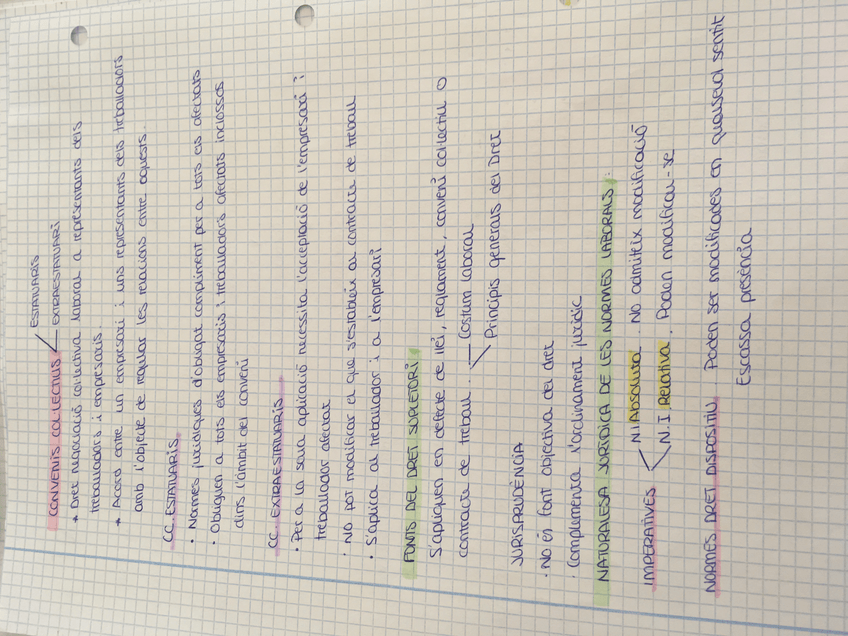 CONVENIS COL·LECTIUS
ESTATUARIS
EXTRAESTATUARI
* Dret negociació col·lectiva laboral a representants dels
treballadors i empresaris
* Acord entre un empresari i uns representants dels treballadors
amb l'objecte de regular les relacions entre aquests.
CC. ESTATUARIS
· Normes jurídiques d'obligat compliment per a tots els afectats
· Obliguen a tots els empresaris i treballadors afectats inclosos
dins l'àmbit del conveni
CC. EXTRAESTATUARIS
· Per a la seua aplicació necessita l'acceptació de l'empresari i
treballador afectat
· NO pot modificar el que s'estableix al contracte de treball
· S'aplica al treballador i a l'empresari
FONTS DEL DRET SUPLETORI
S'apliquen en defecte de llei, reglament, conveni col·lectiu o
contracte de treball.
Costum laboral
Principis generals del Dret
JURISPRUDÈNCIA
· NO és font objectiva del dret
· Complementa l'ordenament jurídic
NATURALESA JURÍDICA DE LES NORMES LABORALS:
IMPERATIVES
N.I Absoluta. No admiteix modificació
N.I. Relativa. Poden modificar-se
NORMES DRET DISPOSITIU. Poden ser modificades en qualsevol sentit
Escassa presència